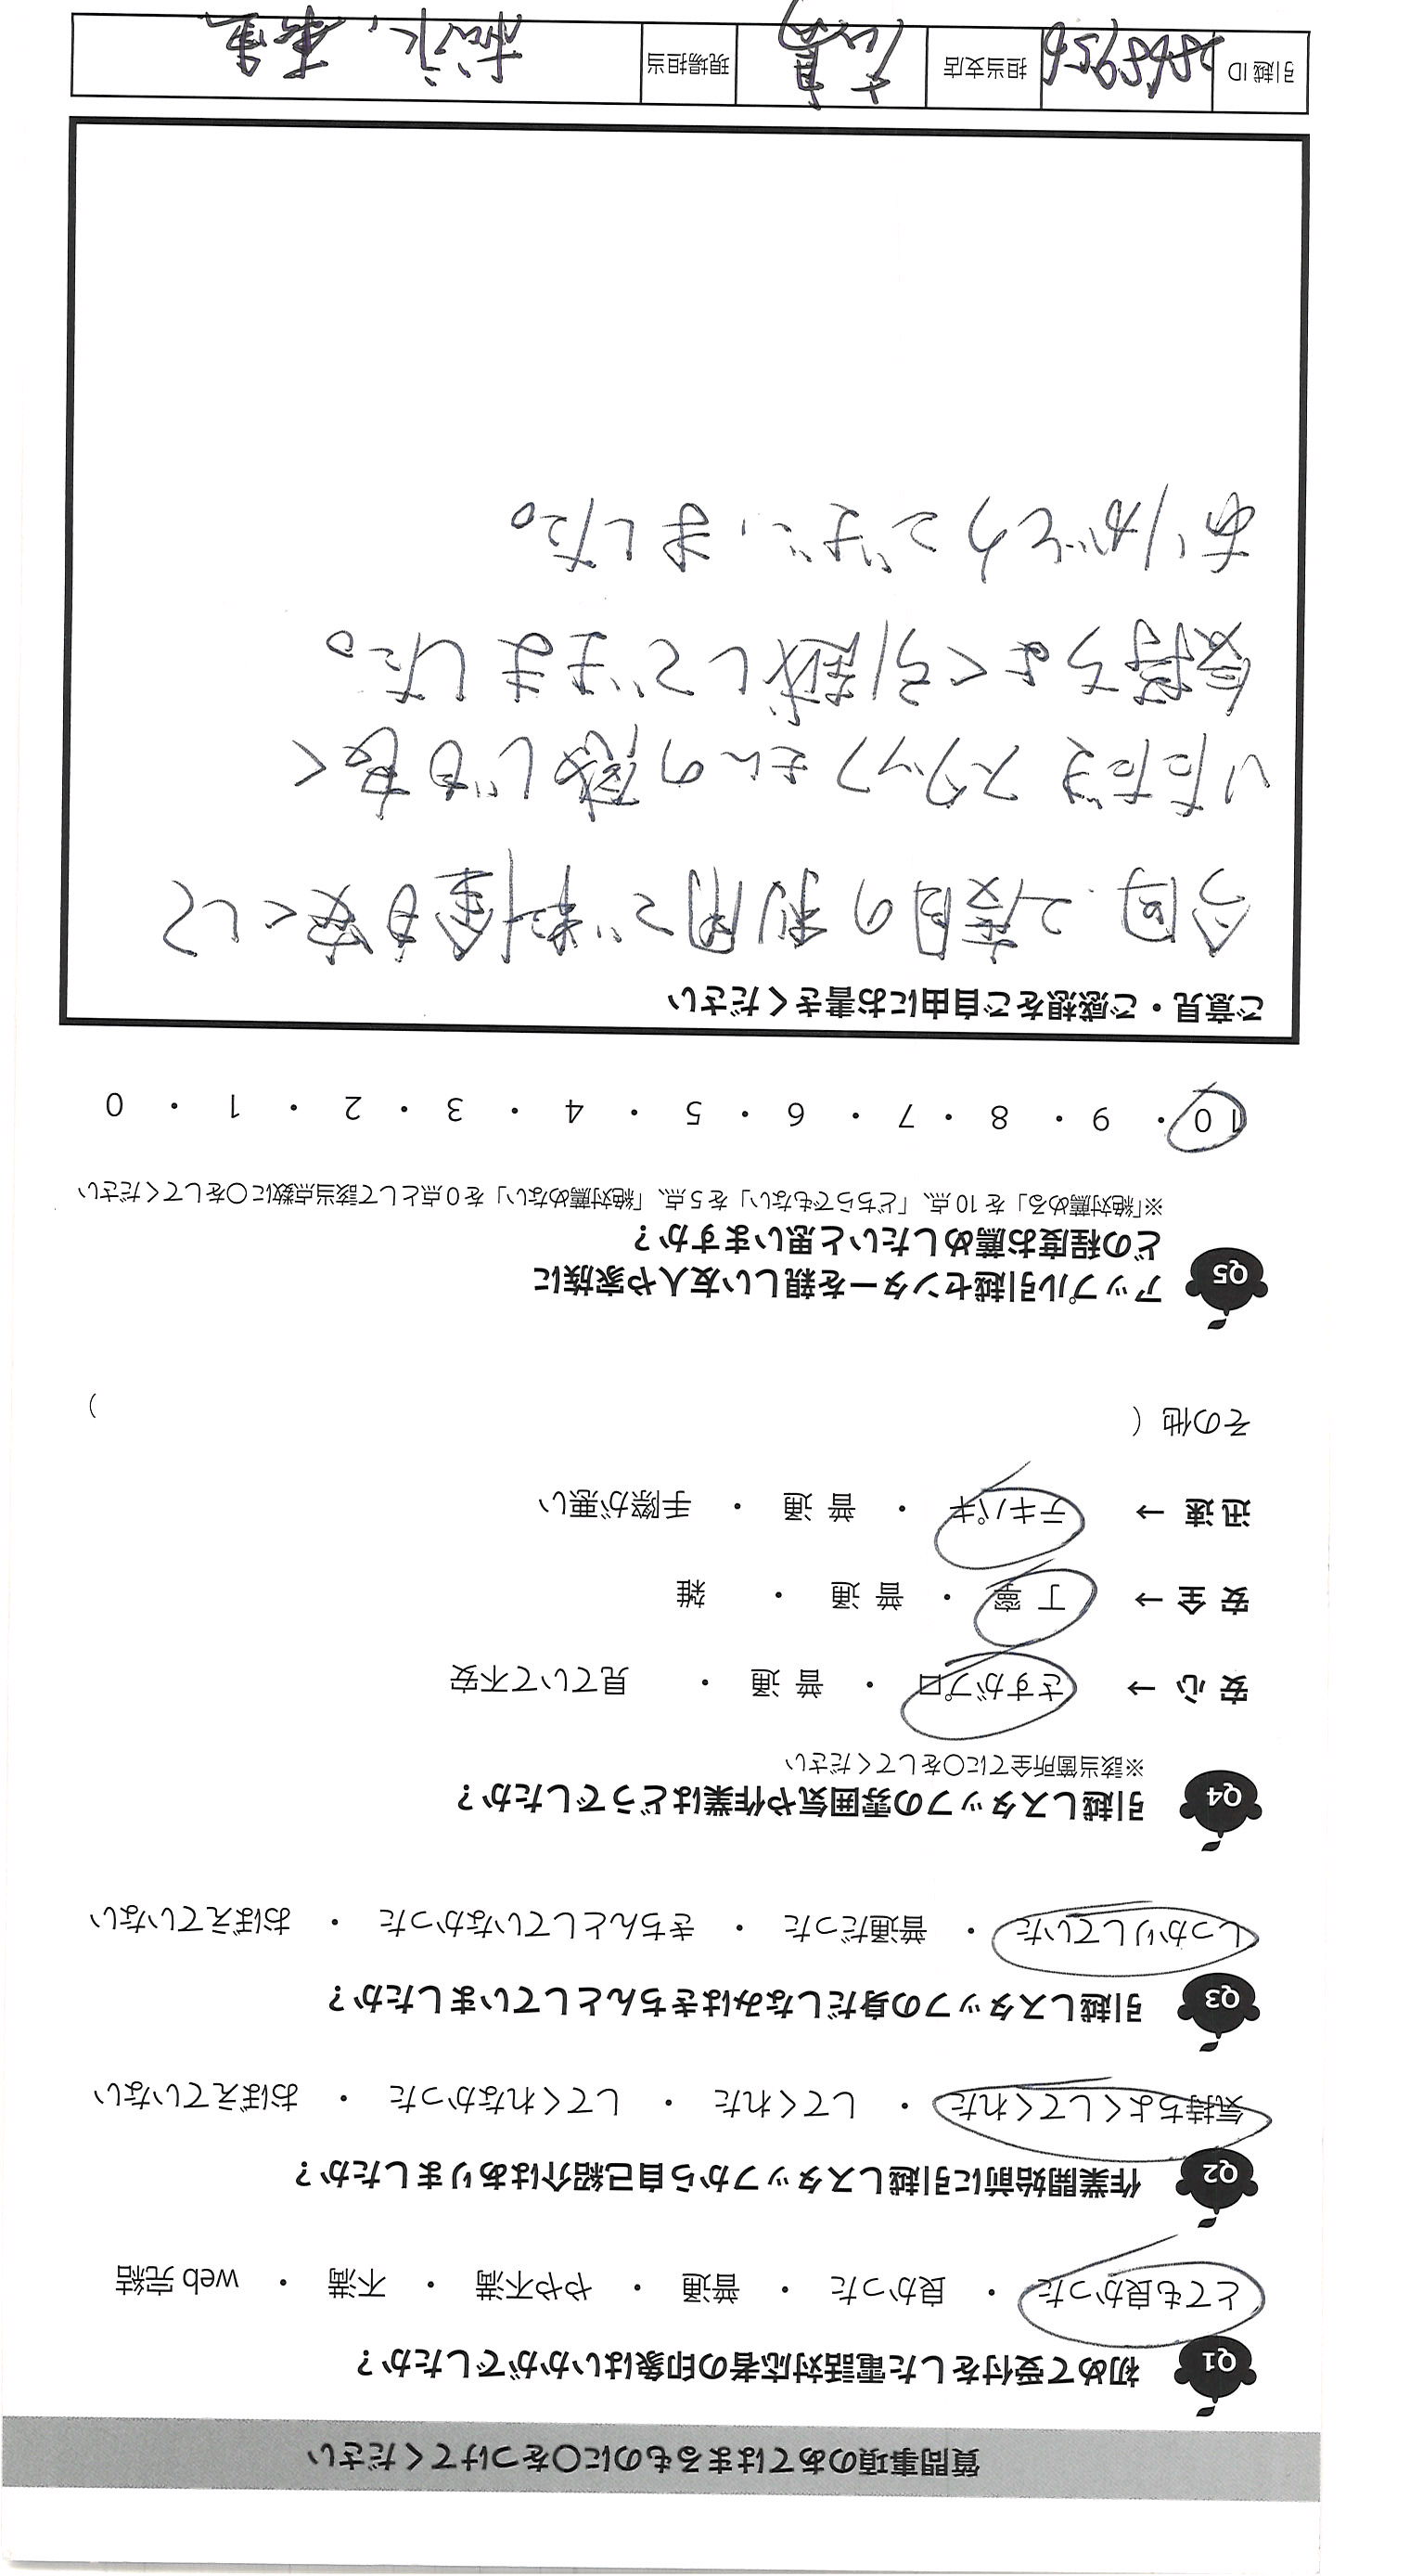 質問事項のあてはまるものに○をつけてください
Q1 初めて受付をした電話対応者の印象はいかがでしたか？
とても良かった ・ 良かった ・ 普通 ・ やや不満 ・ 不満 ・ web 完結
Q2 作業開始前に引越しスタッフから自己紹介はありましたか？
気持ちよくしてくれた ・ してくれた ・ してくれなかった ・ おぼえていない
Q3 引越しスタッフの身だしなみはきちんとしていましたか？
しっかりしていた ・ 普通だった ・ きちんとしていなかった ・ おぼえていない
Q4 引越しスタッフの雰囲気や作業はどうでしたか？
※該当箇所全てに○をしてください
安 心 → さすがプロ ・ 普 通 ・ 見ていて不安
安 全 → 丁 寧 ・ 普 通 ・ 雑
迅 速 → テキパキ ・ 普 通 ・ 手際が悪い
その他（ ）
Q5 アップル引越センターを親しい友人や家族に
どの程度お薦めしたいと思いますか？
※「絶対薦める」を 10 点、「どちらでもない」を 5 点、「絶対薦めない」を 0 点として該当点数に○をしてください
10 ・ 9 ・ 8 ・ 7 ・ 6 ・ 5 ・ 4 ・ 3 ・ 2 ・ 1 ・ 0
ご意見・ご感想をご自由にお書きください
今回、2度目の利用で料金も安くして
いただき スタッフさんの感じも良く
気持ちよく引越しできました。
ありがとうございました。
引越 ID 担当支店 現場担当